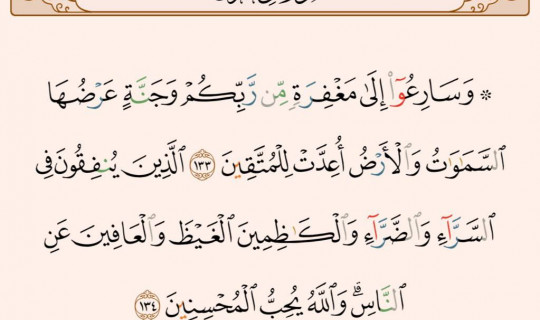 ۞ وَسَارِعُوٓا۟ إِلَىٰ مَغْفِرَةٍ مِّن رَّبِّكُمْ وَجَنَّةٍ عَرْضُهَا
السَّمَٰوَٰتُ وَالْأَرْضُ أُعِدَّتْ لِلْمُتَّقِينَ ١٣٣ الَّذِينَ يُنفِقُونَ فِى
السَّرَّآءِ وَالضَّرَّآءِ وَالْكَٰظِمِينَ الْغَيْظَ وَالْعَافِينَ عَنِ
النَّاسِ ۗ وَاللَّهُ يُحِبُّ الْمُحْسِنِينَ ١٣٤